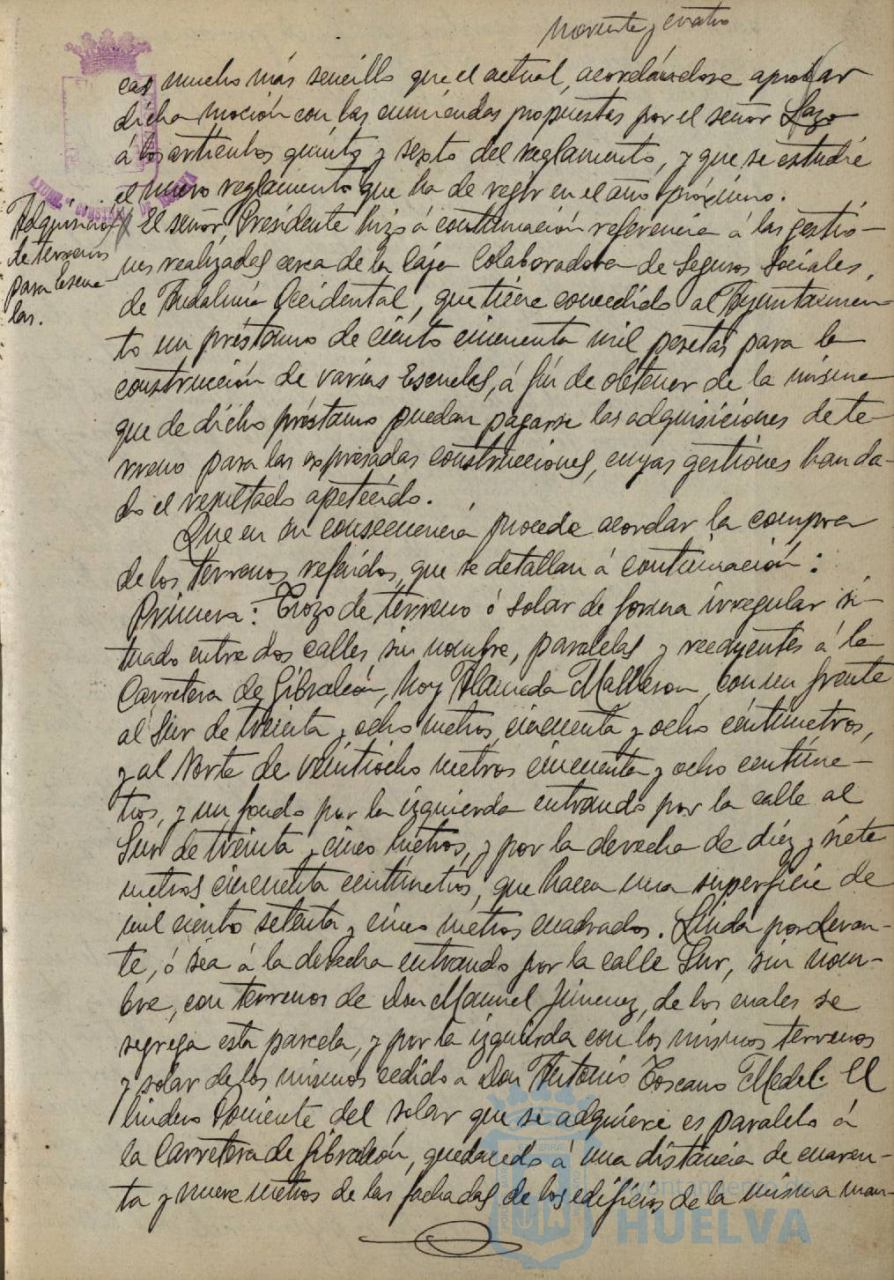 noventa y cuatro
cas mucho más sencillo que el actual, acordándose aprobar
dicha moción con las enmiendas propuestas por el señor Lazo
a los artículos quinto y sexto del reglamento, y que se estudie
el nuevo reglamento que ha de regir en el año próximo.
Adquisición
de terrenos
para Escue-
las.
El señor Presidente hizo á continuación referencia á las gestio-
nes realizadas cerca de la Caja Colaboradora de Seguros Sociales,
de Andalucía Occidental, que tiene concedido al Ayuntamien-
to un préstamo de ciento cincuenta mil pesetas para la
construcción de varias Escuelas, á fin de obtener de la misma
que de dicho préstamo puedan pagarse las adquisiciones de te-
rreno para las expresadas construcciones, cuyas gestiones han da-
do el resultado apetecido.
Que en su consecuencia procede acordar la compra
de los terrenos referidos, que se detallan á continuación:
Primera: Trozo de terreno ó solar de forma irregular si-
tuado entre dos calles sin nombre, paralelas y recayentes á la
Carretera de Gibraleón, hoy Alameda, con un frente
al Sur de treinta y ocho metros, cincuenta y ocho céntimetros,
y al Norte de veintiocho metros cincuenta y ocho centíme-
tros, y un fondo por la izquierda entrando por la calle al
Sur de treinta y cinco metros, y por la derecha de diez y siete
metros cincuenta centímetros, que hacen una superficie de
mil ciento setenta y cinco metros cuadrados. Linda por Levan-
te, ó sea á la derecha entrando por la calle Sur, sin nom-
bre, con terrenos de Don Manuel Jimenez, de los cuales se
segrega esta parcela, y por la izquierda con los mismos terrenos
y solar de los mismos cedido a Don Antonio Toscano Medel. El
lindero Poniente del solar que se adquiere es paralelo á
la Carretera de Gibraleón, quedando á una distancia de cuaren-
ta y nueve metros de las fachadas de los edificios de la misma man-
Ayuntamiento de
HUELVA